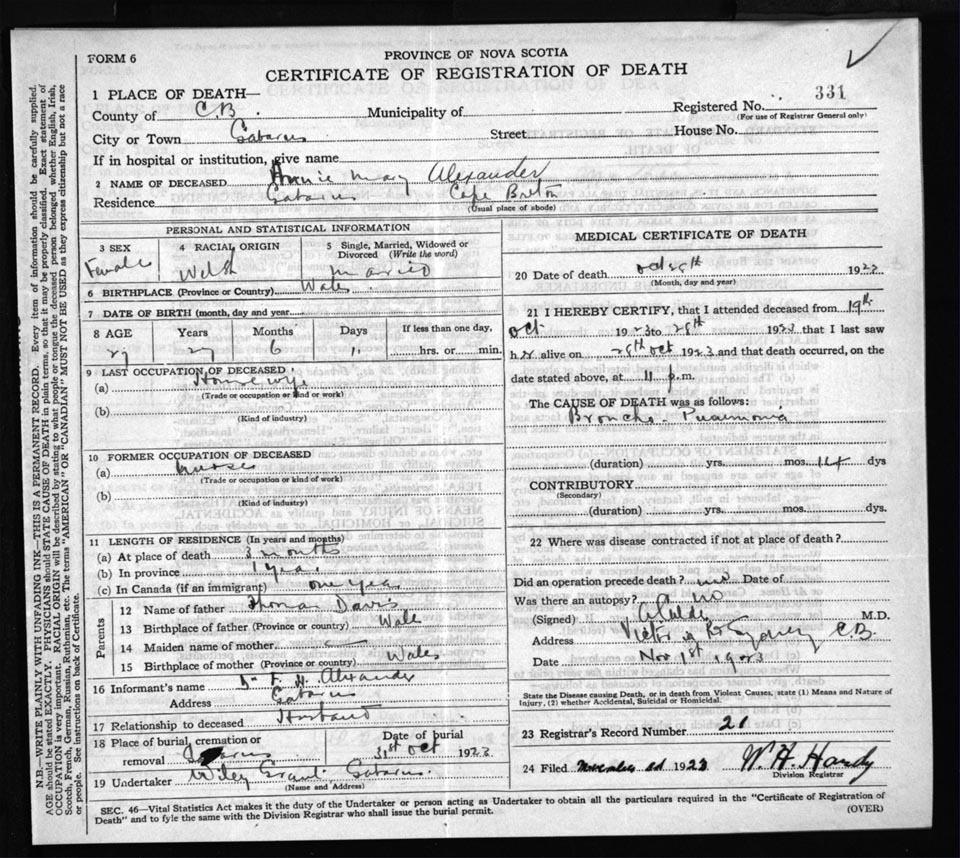 FORM 6
PROVINCE OF NOVA SCOTIA
CERTIFICATE OF REGISTRATION OF DEATH
1 PLACE OF DEATH—
County of C.B. Municipality of Registered No. 331
(For use of Registrar General only)
City or Town Gabarus Street House No.
If in hospital or institution, give name
2 NAME OF DECEASED Annie Mary Alexander
Residence Gabarus Cape Breton
(Usual place of abode)
PERSONAL AND STATISTICAL INFORMATION
3 SEX 4 RACIAL ORIGIN 5 Single, Married, Widowed or Divorced (Write the word)
Female Welsh Married
6 BIRTHPLACE (Province or Country) Wales
7 DATE OF BIRTH (month, day and year)
8 AGE Years Months Days If less than one day,
27 27 6 hrs. or min.
9 LAST OCCUPATION OF DECEASED
(a) Housewife
(Trade or occupation or kind or work)
(b)
(Kind of industry)
10 FORMER OCCUPATION OF DECEASED
(a) Nurse
(Trade or occupation or kind of work)
(b)
(Kind of industry)
11 LENGTH OF RESIDENCE (In years and months)
(a) At place of death 3 months
(b) In province 1 year
(c) In Canada (if an immigrant) one year
Parents
12 Name of father Thomas Davis
13 Birthplace of father (Province or country) Wales
14 Maiden name of mother
15 Birthplace of mother (Province or country) Wales
16 Informant's name H. Alexander
Address Gabarus
17 Relationship to deceased Husband
18 Place of burial, cremation or removal Date of burial
31st Oct 1923
19 Undertaker Wiley Grant Gabarus
(Name and Address)
MEDICAL CERTIFICATE OF DEATH
20 Date of death Oct 28th 1923
(Month, day and year)
21 I HEREBY CERTIFY, that I attended deceased from 19th
Oct 1923 to 28th 1923 that I last saw
her alive on 28th Oct 1923 and that death occurred, on the
date stated above, at 11 p.m.
The CAUSE OF DEATH was as follows:
Broncho Pneumonia
(duration) yrs. mos. 14 dys
CONTRIBUTORY
(Secondary)
(duration) yrs. mos. dys.
22 Where was disease contracted if not at place of death?
Did an operation precede death? no Date of
Was there an autopsy? no
(Signed) M.D.
Address Sydney C.B.
Date Nov 1st 1923
State the Disease causing Death, or in death from Violent Causes, state (1) Means and Nature of
Injury, (2) whether Accidental, Suicidal or Homicidal.
23 Registrar's Record Number 21
24 Filed November 1923 W. H. Hardy
Division Registrar
SEC. 46—Vital Statistics Act makes it the duty of the Undertaker or person acting as Undertaker to obtain all the particulars required in the "Certificate of Registration of
Death" and to fyle the same with the Division Registrar who shall issue the burial permit.
(OVER)
N.B.—WRITE PLAINLY WITH UNFADING INK—THIS IS A PERMANENT RECORD. Every item of information should be carefully supplied.
AGE should be stated EXACTLY. PHYSICIANS should STATE CAUSE OF DEATH in plain terms, so that it may be properly classified. Exact statement of
OCCUPATION is very important. RACIAL ORIGIN will be described by stating to what people or tongue the deceased person belonged whether English, Irish,
Scotch, French, German, Russian, Ruthenian, etc. The terms "AMERICAN" OR "CANADIAN" MUST NOT BE USED as they express citizenship but not a race
or people. See instructions on back of Certificate.